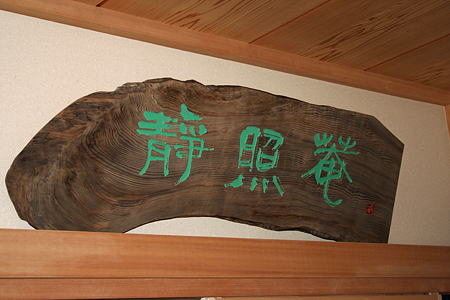 靜照菴